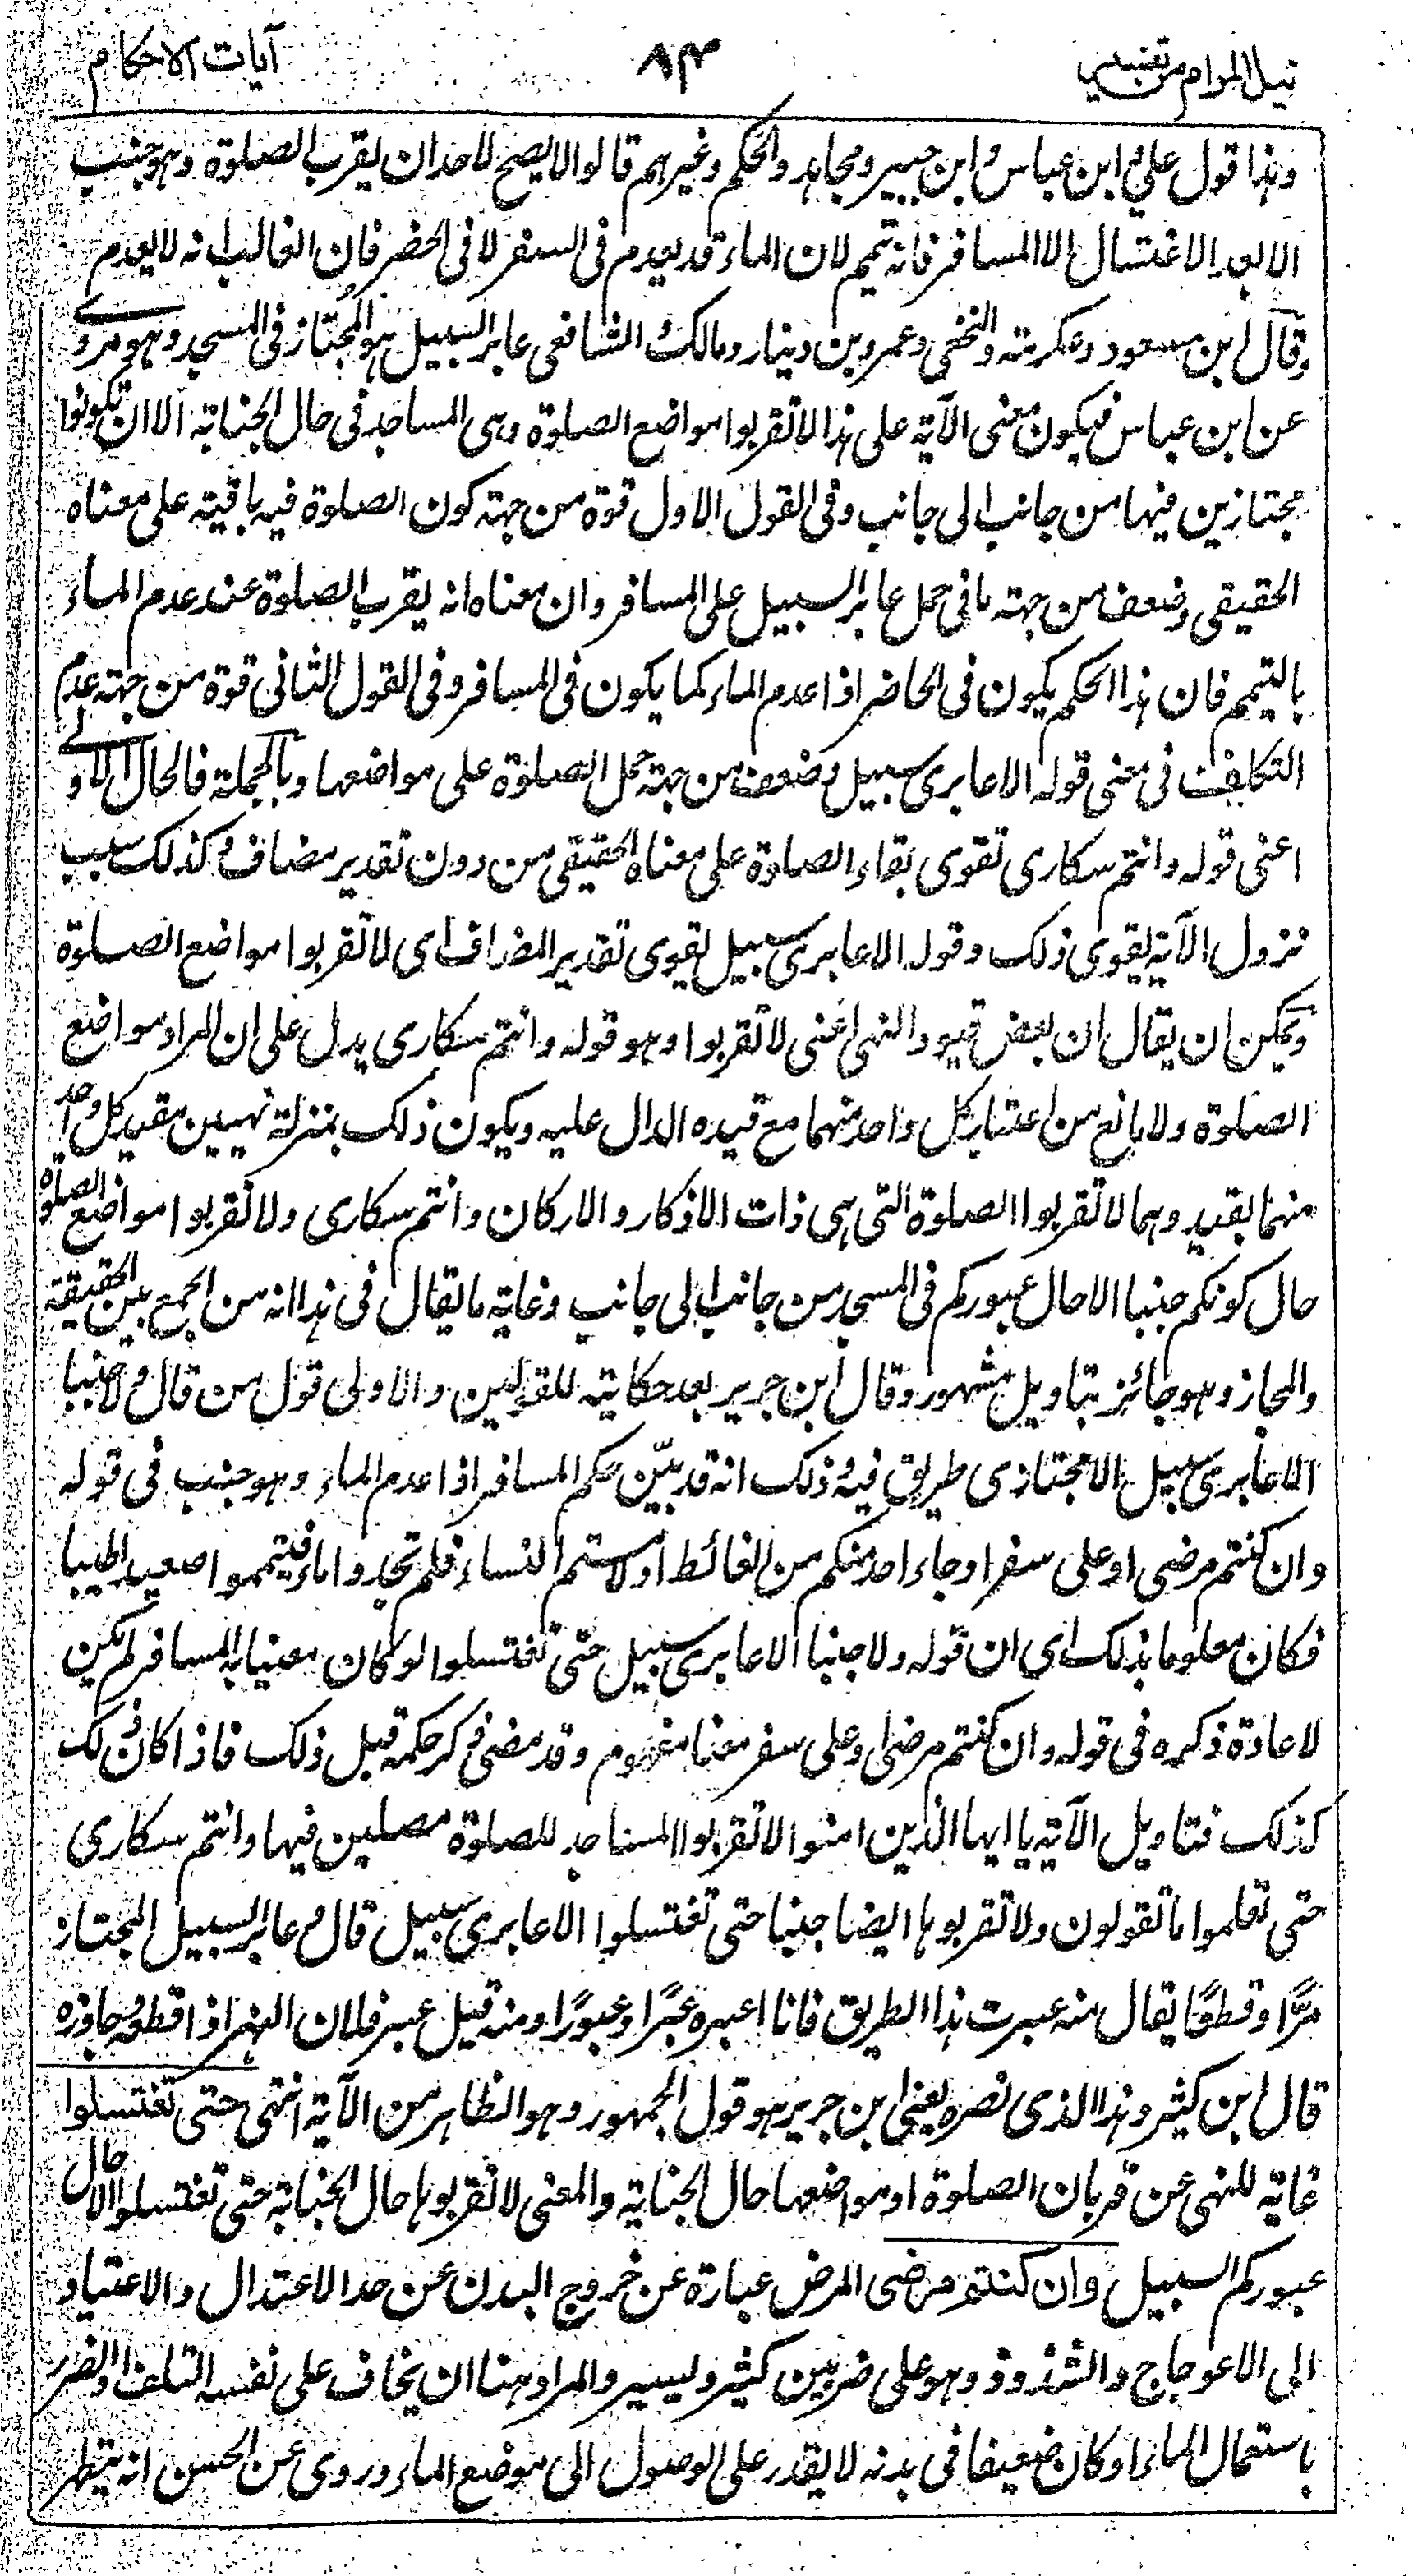 نيل المرام من تفسير
٨٣
آيات الاحكام
وهذا قول علي وابن عباس وابن جبير ومجاهد والحكم وغيرهم قالوا لا يصح لاحد ان يقرب الصلوة وهو جنب
الا بعد الاغتسال الا المسافر فانه تيمم لان الماء قد يعدم فى السفر لا فى الحضر فان الغالب انه لا يعدم
وقال ابن مسعود وعكرمة والنخعي وعمرو بن دينار ومالك والشافعى عابر السبيل هو المجتاز فى المسجد وهو مروى
عن ابن عباس فيكون معنى الآية على هذا لا تقربوا مواضع الصلوة وهى المساجد فى حال الجنابة الا ان تكونوا
مجتازين فيها من جانب الى جانب وفى القول الاول قوة من جهة كون الصلوة فيه باقية على معناه
الحقيقى وضعف من جهة ما فى حمل عابر السبيل على المسافر وان معناه انه يقرب الصلوة عند عدم الماء
بالتيمم فان هذا الحكم يكون فى الحاضر اذا عدم الماء كما يكون فى المسافر وفى القول الثانى قوة من جهة عدم
التكلف فى معنى قوله الا عابرى سبيل وضعف من جهة حمل الصلوة على مواضعها وبالجملة فالحال الاولى
اعنى قوله وانتم سكارى تقوى بقاء الصلوة على معناه الحقيقى من دون تقدير مضاف وكذلك سبب
نزول الآية يقوى ذلك وقوله الا عابرى سبيل يقوى تقدير المضاف اى لا تقربوا مواضع الصلوة
ويمكن ان يقال ان بعض قيود النهى اعنى لا تقربوا وهو قوله وانتم سكارى يدل على ان المراد مواضع
الصلوة ولا مانع من اعتبار كل واحد منهما مع قيده الدال عليه ويكون ذلك بمنزلة نهيين مقيد كل واحد
منهما بقيد وهما لا تقربوا الصلوة التى هى ذات الاذكار والاركان وانتم سكارى ولا تقربوا مواضع الصلوة
حال كونكم جنبا الا حال عبوركم فى المسجد من جانب الى جانب وغاية ما يقال فى هذا انه من الجمع بين الحقيقة
والمجاز وهو جائز بتاويل مشهور وقال ابن جرير بعد حكايته للقولين والاولى قول من قال ولا جنبا
الا عابرى سبيل الا مجتازى طريق فيه وذلك انه قد بيّن حكم المسافر اذا عدم الماء وهو جنب فى قوله
وان كنتم مرضى او على سفر او جاء احد منكم من الغائط او لامستم النساء فلم تجدوا ماء فتيمموا صعيدا طيبا
فكان معلوما بذلك اى ان قوله ولا جنبا الا عابرى سبيل حتى تغتسلوا لو كان معنيا به المسافر لم يكن
لاعادة ذكره فى قوله وان كنتم مرضى او على سفر معنا مفهوم وقد مضى ذكر حكمه قبل ذلك فاذا كان ذلك
كذلك فتاويل الآية يا ايها الذين امنوا لا تقربوا المساجد للصلوة مصلين فيها وانتم سكارى
حتى تعلموا ما تقولون ولا تقربوها ايضا جنبا حتى تغتسلوا الا عابرى سبيل قال وعابر السبيل المجتاز
مرًّا وقطعًا يقال منه عبرت هذا الطريق فانا اعبره عبرًا وعبورًا ومنه قيل عبر فلان النهر اذا قطعه وجاوزه
قال ابن كثير وهذا الذى نصره يعنى ابن جرير هو قول الجمهور وهو الظاهر من الآية انتهى حتى تغتسلوا
غاية للنهى عن قربان الصلوة او مواضعها حال الجنابة والمعنى لا تقربوها حال الجنابة حتى تغتسلوا الا حال
عبوركم السبيل وان كنتم مرضى المرض عبارة عن خروج البدن عن حد الاعتدال والاعتياد
الى الاعوجاج والشذوذ وهو على ضربين كثير ويسير والمراد هنا ان يخاف على نفسه التلف او الضرر
باستعمال الماء او كان ضعيفا فى بدنه لا يقدر على الوصول الى موضع الماء وروى عن الحسن انه يتطهر